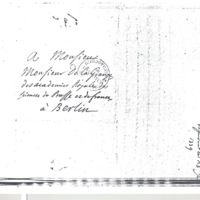 A Monsieur
Monsieur de la Grange
des academies Royales des
sciences de Prusse et de france
à Berlin